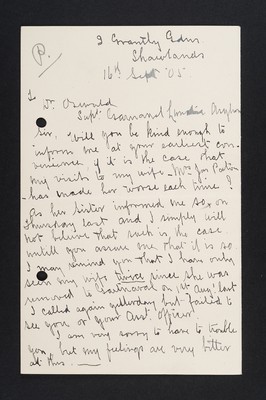 P.
3 Grantly Gdns
Shawlands
16th Sept '05
To
Dr. Oswald
Supt. Gartnavel Lunatic Asylum
Sir, Will you be kind enough to
inform me at your earliest con-
venience if it is the case that
my visits to my wife - Mrs
- has made her worse each time?
As her Sister informed me so, on
Thursday last and I simply will
not believe that such is the case
untill you assure me that it is so
I may remind you that I have only
seen my wife twice since she was
removed to Gartnavel on 1st Augt. last
I called again yesterday but failed to
see you or your asst. officer.
I am very sorry to have to trouble
you, but my feelings are very bitter
at this.